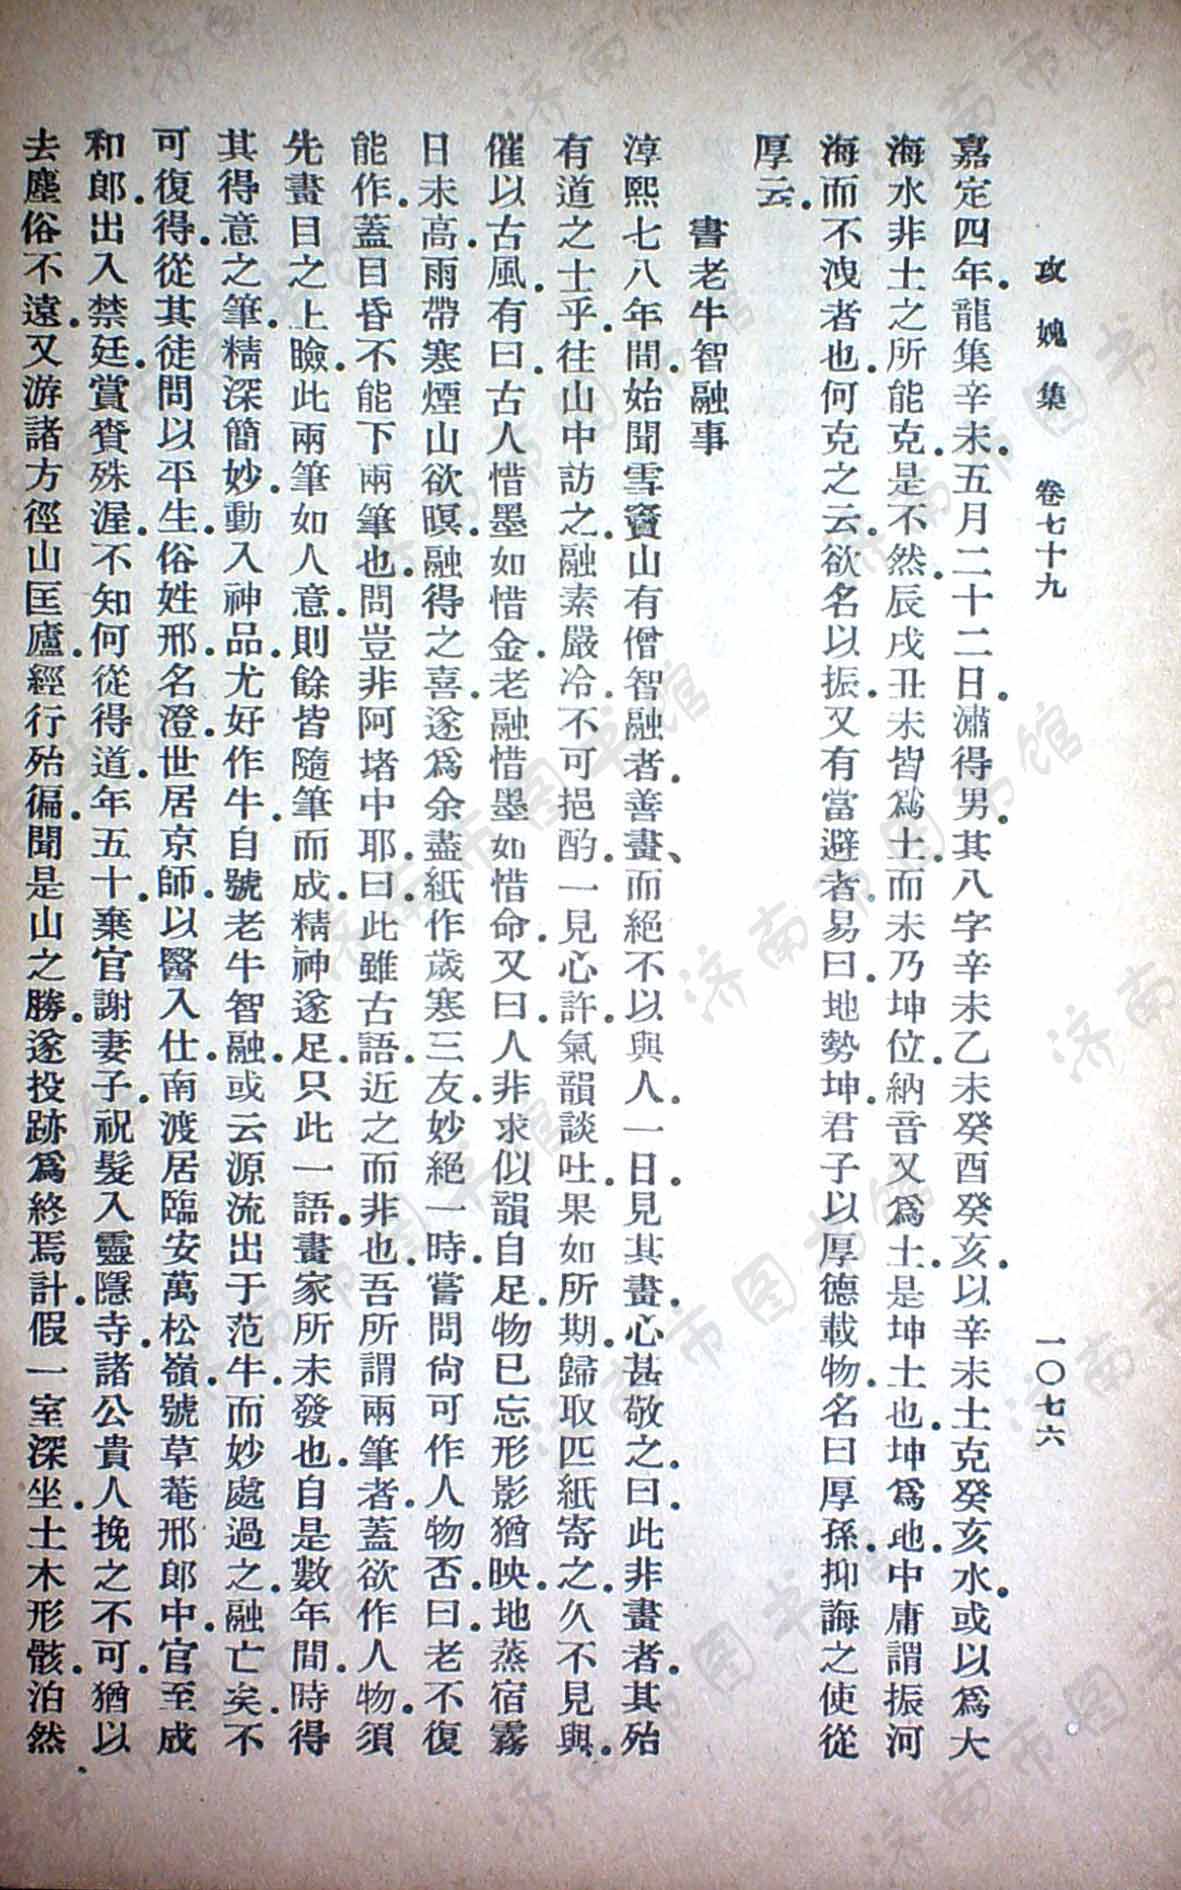 攻媿集　卷七十九　一〇七六
嘉定四年.龍集辛未.五月二十二日.潚得男.其八字辛未乙未癸酉癸亥.以辛未土克癸亥水.或以爲大
海水非土之所能克.是不然.辰戌丑未皆爲土.而未乃坤位.納音又爲土.是坤土也.坤爲地.中庸謂振河
海而不洩者也.何克之云.欲名以振.又有當避者.易曰.地勢坤.君子以厚德載物.名曰厚孫.抑誨之使從
厚云.
書老牛智融事
淳熙七八年間.始聞雪竇山有僧智融者.善畫、而絕不以與人.一日.見其畫.心甚敬之.曰.此非畫者.其殆
有道之士乎.往山中訪之.融素嚴冷.不可挹酌.一見心許.氣韻談吐.果如所期.歸取匹紙寄之.久不見與.
催以古風.有曰.古人惜墨如惜金.老融惜墨如惜命.又曰.人非求似韻自足.物已忘形影猶映.地蒸宿霧
日未高.雨帶寒煙山欲暝.融得之喜.遂爲余盡紙作歲寒三友.妙絕一時.嘗問尙可作人物否.曰.老不復
能作.蓋目昏不能下兩筆也.問豈非阿堵中耶.曰.此雖古語.近之而非也.吾所謂兩筆者.蓋欲作人物.須
先畫目之上瞼.此兩筆如人意.則餘皆隨筆而成.精神遂足.只此一語.畫家所未發也.自是數年間.時得
其得意之筆.精深簡妙.動入神品.尤好作牛.自號老牛智融.或云源流出于范牛.而妙處過之.融亡矣.不
可復得.從其徒問以平生.俗姓邢.名澄.世居京師.以醫入仕.南渡居臨安萬松嶺.號草菴邢郎中.官至成
和郎.出入禁廷.賞賚殊渥.不知何從得道.年五十.棄官謝妻子.祝髮入靈隱寺.諸公貴人挽之不可.猶以
去塵俗不遠.又游諸方徑山匡廬.經行殆徧.聞是山之勝.遂投跡爲終焉計.假一室深坐.土木形骸.泊然.